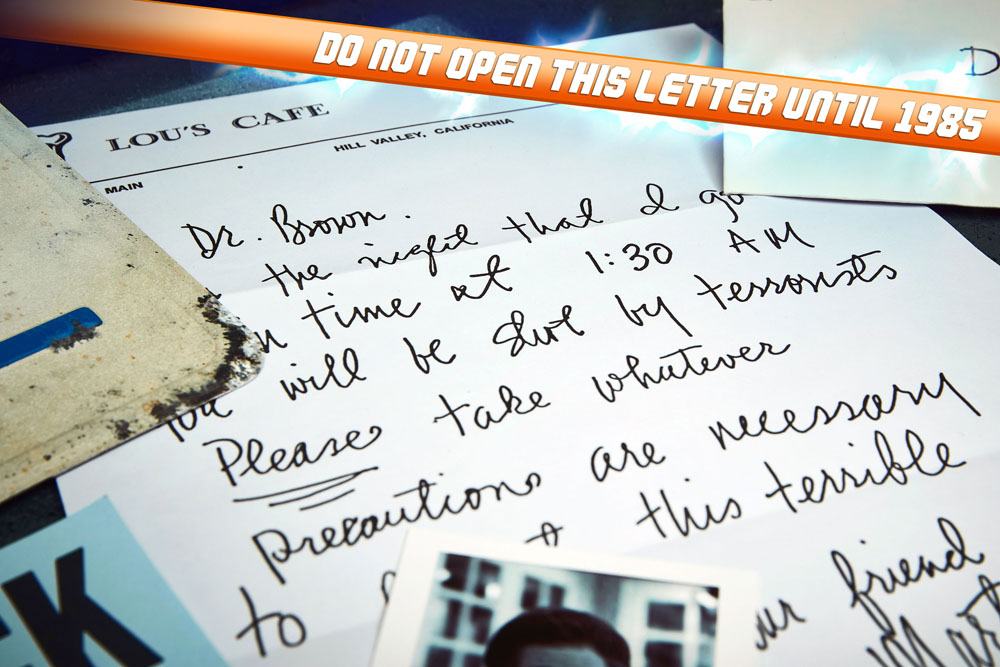 DO NOT OPEN THIS LETTER UNTIL 1985
D
LOU'S CAFE
HILL VALLEY, CALIFORNIA
MAIN
Dr. Brown.
the night that I go
n time at 1:30 AM
You will be shot by terrorists
Please take whatever
precautions are necessary
to this terrible
ur friend
K